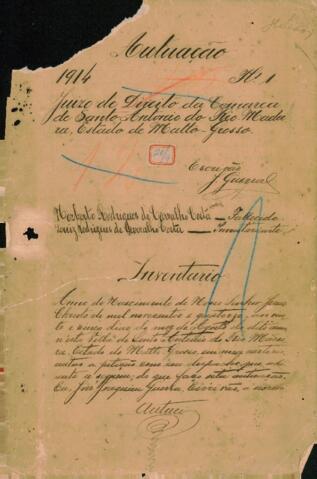 Autuação
1914 Nº 1
Juizo de Direito da Comarca
de Santo Antonio do Rio Madei
ra, Estado de Matto-Grosso.
Escrivão
J Guerra
Herberto Rodrigues de Carvalho Costa — Fallecido
Rodrigues de Carvalho Costa — Inventariante
Inventario
Anno do Nascimento de Nosso Senhor Jesus
Christo de mil novecentos e quatorze, aos
e cinco dias do mez de Agosto do dito anno
n'esta Villa de Santo Antonio do Rio Madei
ra, Estado de Matto Grosso, em meu cartorio
a petição com seu despacho que
a seguem; do que faço esta autuação.
Eu, José Joaquim Guerra, Escrivão, o escrevi
Autuei